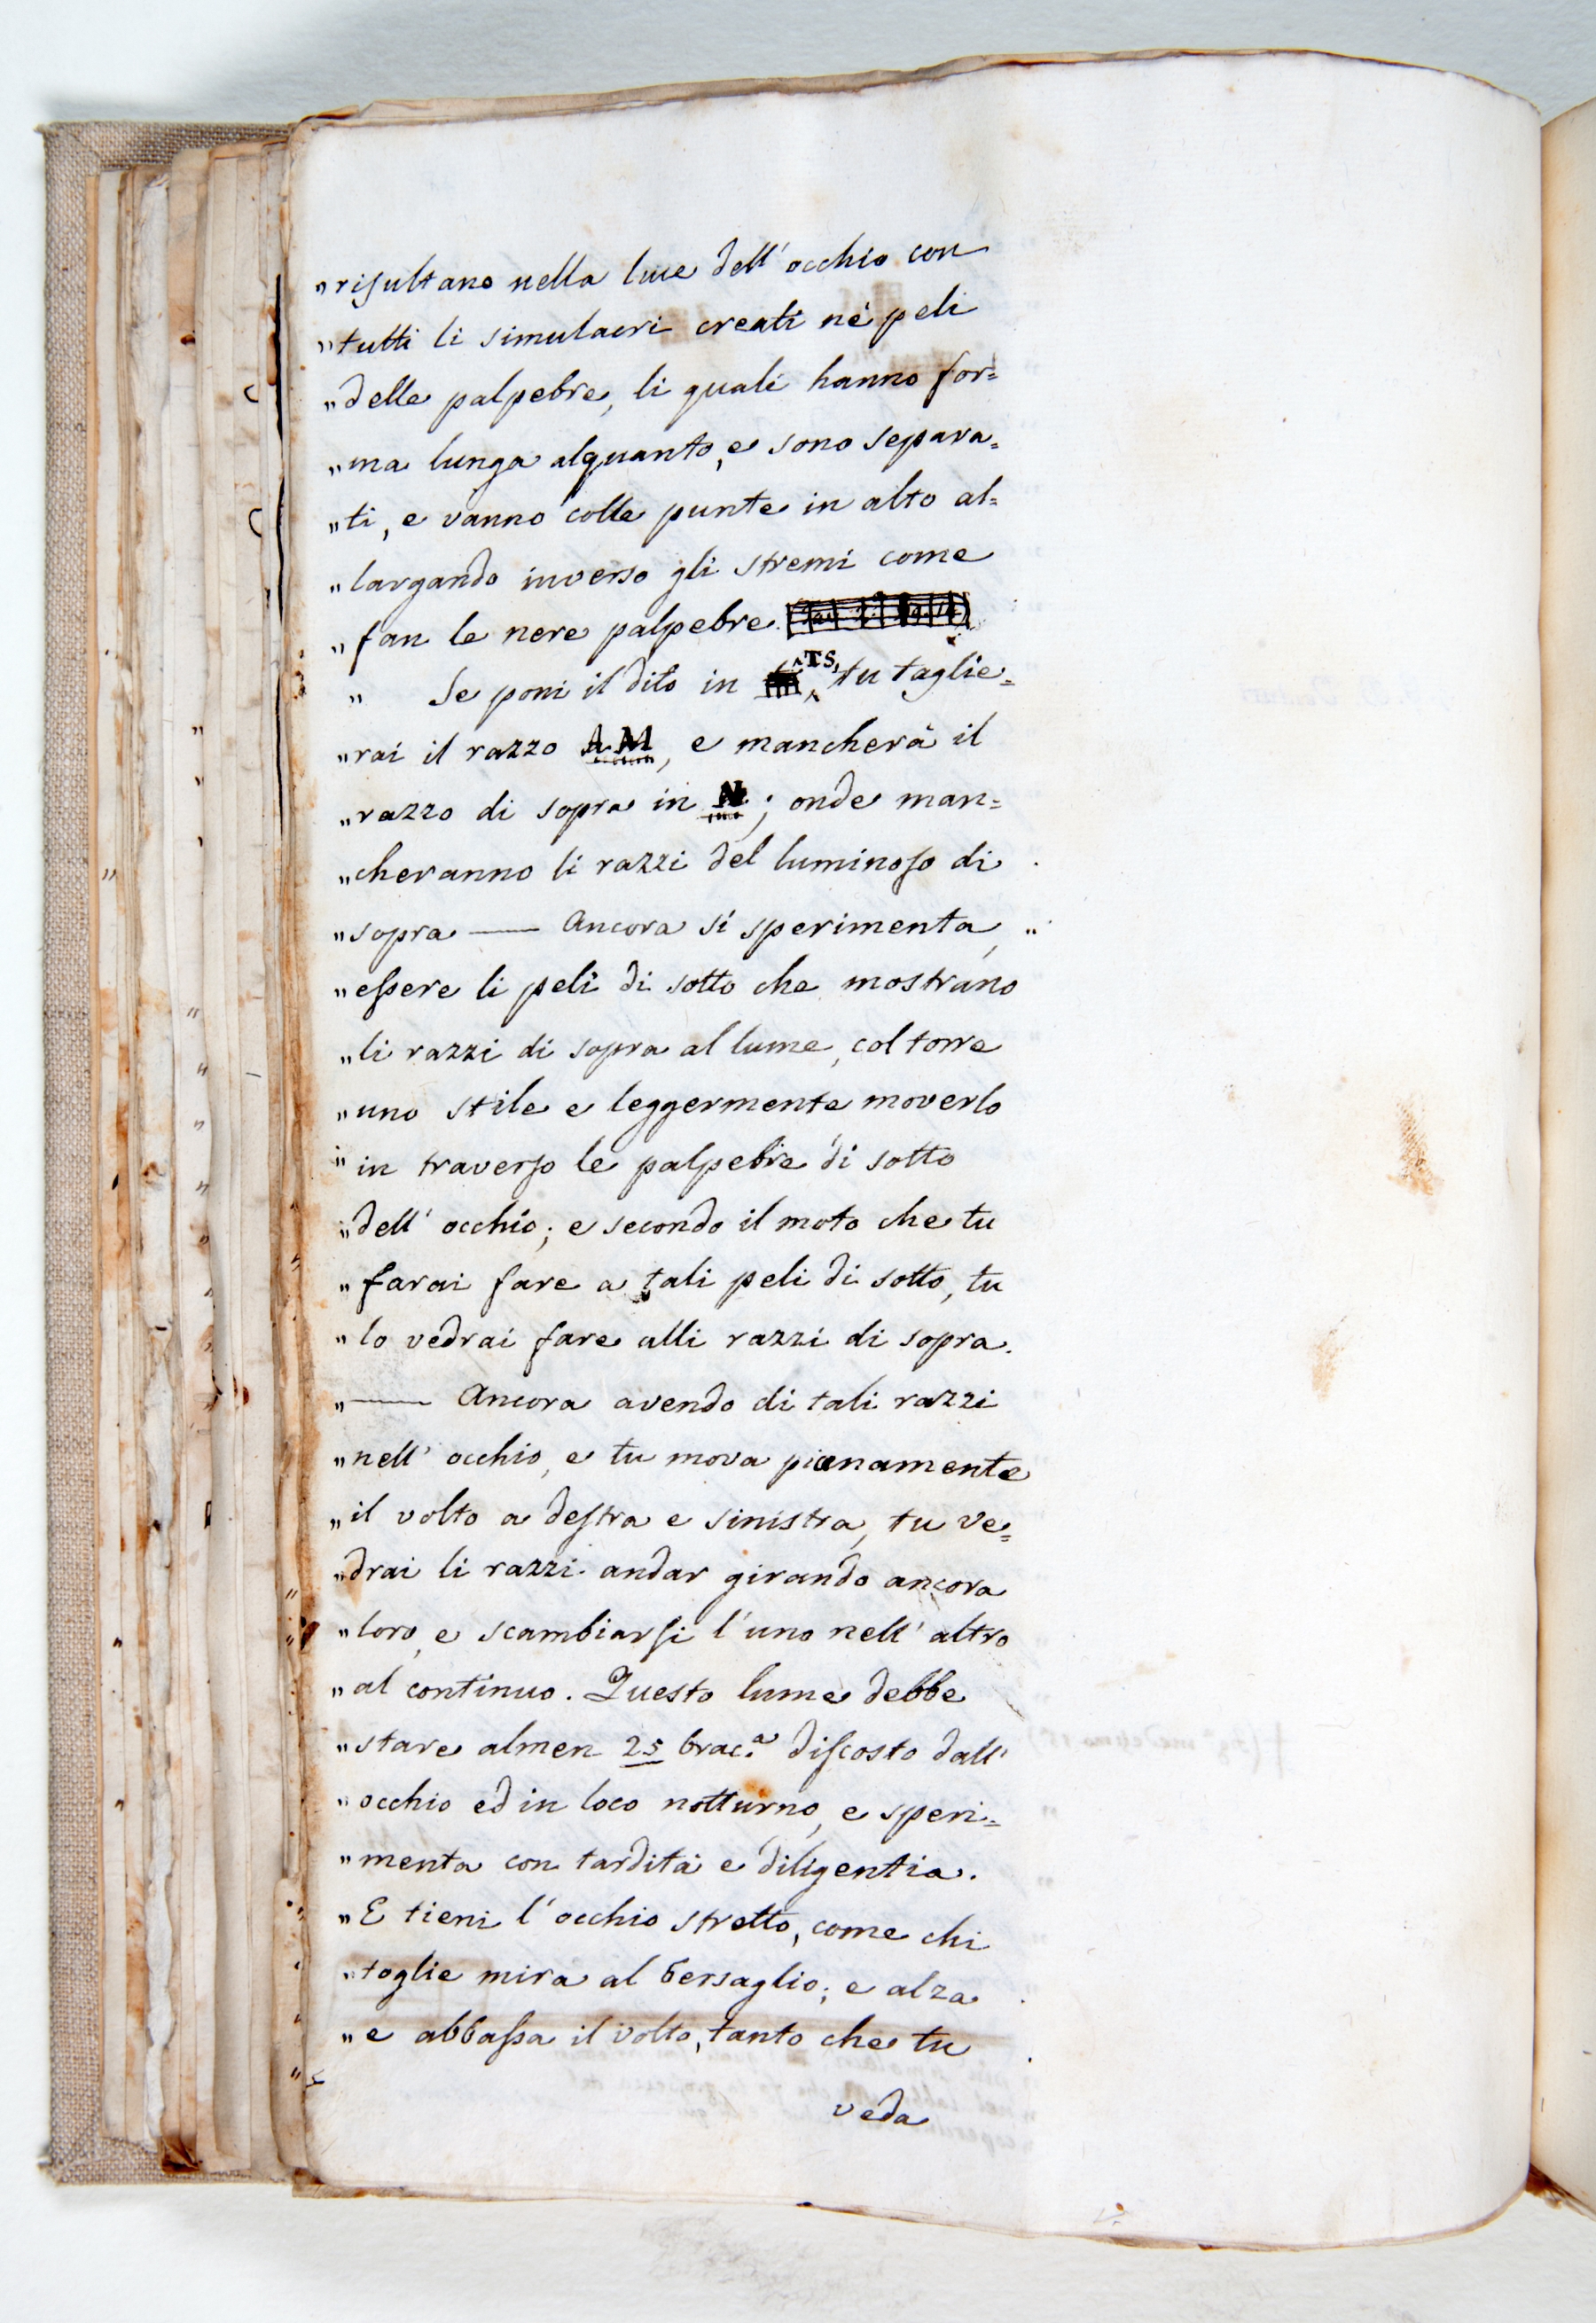 „risultano nella luce dell' occhio con
„tutti li simulacri creati ne' peli
„delle palpebre, li quali hanno for=
„ma lunga alquanto, e sono separa=
„ti, e vanno colle punte in alto al=
„largando inverso gli stremi come
„fan le nere palpebre.
„ Se poni il dito in TS, tu taglie=
„rai il razzo AM, e mancherà il
„razzo di sopra in N; onde man=
„cheranno li razzi del luminoso di
„sopra —— Ancora si sperimenta,
„essere li peli di sotto che mostrano
„li razzi di sopra al lume, col torre
„uno stile e leggermente moverlo
„in traverso le palpebre di sotto
„dell' occhio; e secondo il moto che tu
„farai fare a tali peli di sotto, tu
„lo vedrai fare alli razzi di sopra.
„—— Ancora avendo di tali razzi
„nell' occhio, e tu mova pianamente
„il volto a destra e sinistra, tu ve=
„drai li razzi andar girando ancora
„loro, e scambiarsi l'uno nell' altro
„al continuo. Questo lume debbe
„stare almen 25 brac.ª discosto dall'
„occhio ed in loco notturno, e speri=
„menta con tardità e diligentia.
„E tieni l'occhio stretto, come chi
„toglie mira al bersaglio; e alza
„e abbassa il volto, tanto che tu
veda